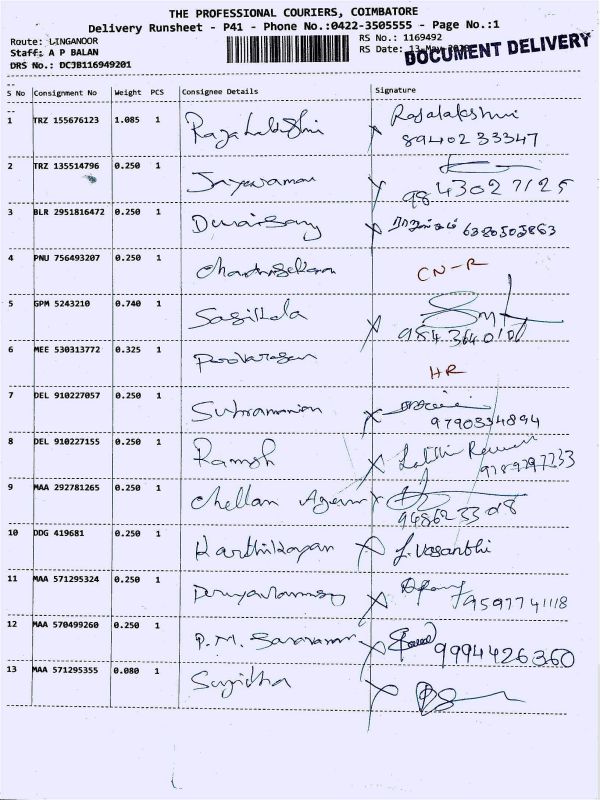 THE PROFESSIONAL COURIERS, COIMBATORE
Delivery Runsheet - P41 - Phone No.:0422-3505555 - Page No.:1
Route: LINGANOOR
Staff: A P BALAN
DRS No.: DCJB116949201
RS No.: 1169492
RS Date: 13-May
DOCUMENT DELIVERY
S No Consignment No Weight PCS Consignee Details Signature
1 TRZ 155676123 1.085 1 Rajalakshmi Rajalakshmi
8940233347
2 TRZ 135514796 0.250 1 Jayaraman
9843027125
3 BLR 2951816472 0.250 1 Duraisamy
4 PNU 756493207 0.250 1 Chandrasekaran CN-R
5 GPM 5243210 0.740 1 Sasikala
6 MEE 530313772 0.325 1 Poovarasan HR
7 DEL 910227057 0.250 1 Subramanian
9790334894
8 DEL 910227155 0.250 1 Ramesh
9789297233
9 MAA 292781265 0.250 1 Chellam Agency
10 DDG 419681 0.250 1 Karthikayan J. Vasanthi
11 MAA 571295324 0.250 1
9597741118
12 MAA 570499260 0.250 1 P.M.
9994426360
13 MAA 571295355 0.080 1 Sugidha